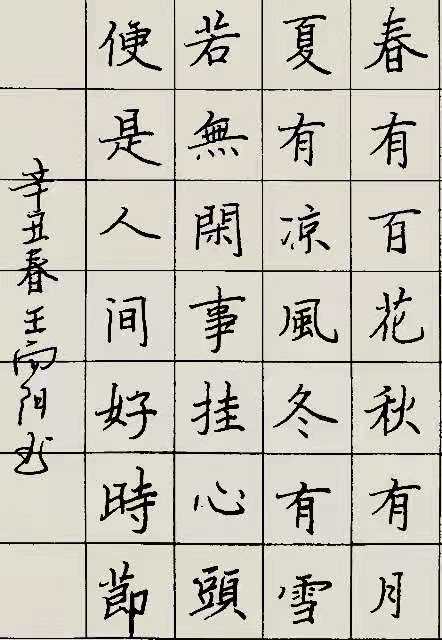 春有百花秋有月
夏有凉風冬有雪
若無閑事挂心頭
便是人间好時節
辛丑春王南阳书